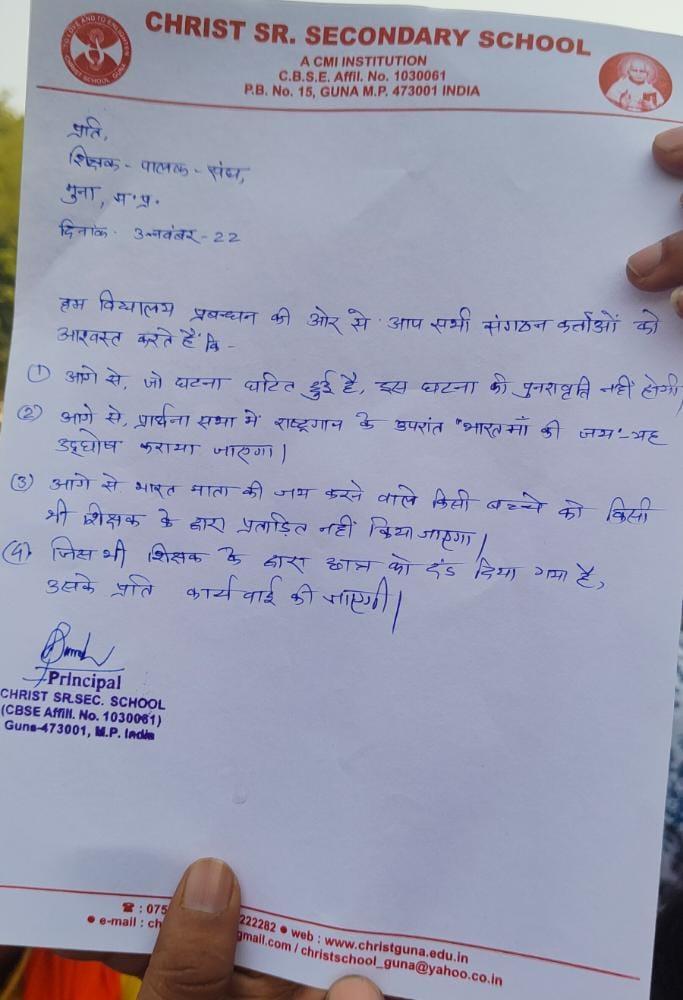 TO LOVE AND TO ENLIGHTEN
CHRIST SCHOOL GUNA
CHRIST SR. SECONDARY SCHOOL
A CMI INSTITUTION
C.B.S.E. Affil. No. 1030061
P.B. No. 15, GUNA M.P. 473001 INDIA
प्रति,
शिक्षक - पालक - संघ,
गुना, म.प्र.
दिनांक. 3 नवंबर - 22
हम विद्यालय प्रबन्धन की ओर से आप सभी संगठन कर्ताओं को
आश्वस्त करते हैं कि -
(1) आगे से, जो घटना घटित हुई है, इस घटना की पुनरावृत्ति नहीं होगी
(2) आगे से, प्रार्थना सभा में राष्ट्रगान के उपरांत "भारत माँ की जय" - यह
उद्घोष कराया जाएगा।
(3) आगे से भारत माता की जय करने वाले किसी बच्चे को किसी
भी शिक्षक के द्वारा प्रताड़ित नहीं किया जाएगा।
(4) जिस भी शिक्षक के द्वारा छात्र को दंड दिया गया है,
उसके प्रति कार्यवाई की जाएगी।
Principal
CHRIST SR.SEC. SCHOOL
(CBSE Affill. No. 1030061)
Guna-473001, M.P. India
☎ : 075 222282 ● web : www.christguna.edu.in
● e-mail : ch gmail.com / christschool_guna@yahoo.co.in